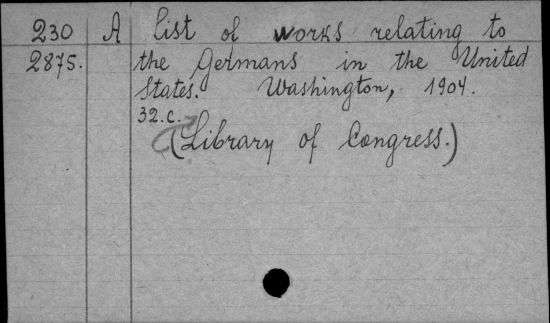 230 A List of works relating to
2875. the Germans in the United
States. Washington, 1904.
32.c.
(Library of Congress.)